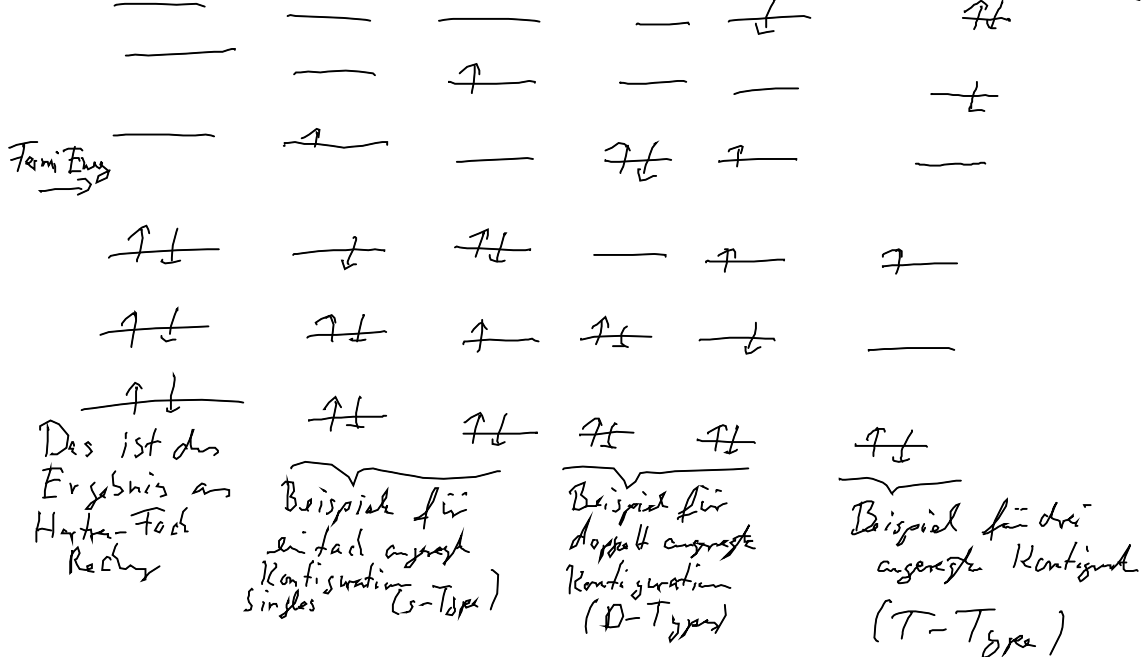 Fermi Energ
Das ist das
Ergebnis aus
Hartree-Fock
Rechng
Beispiel für
einfach angeregte
Konfiguration
Singles (S-Type)
Beispiel für
doppelt angeregte
Konfiguration
(D-Types)
Beispiel für drei
angeregte Konfigurat
(T-Type)